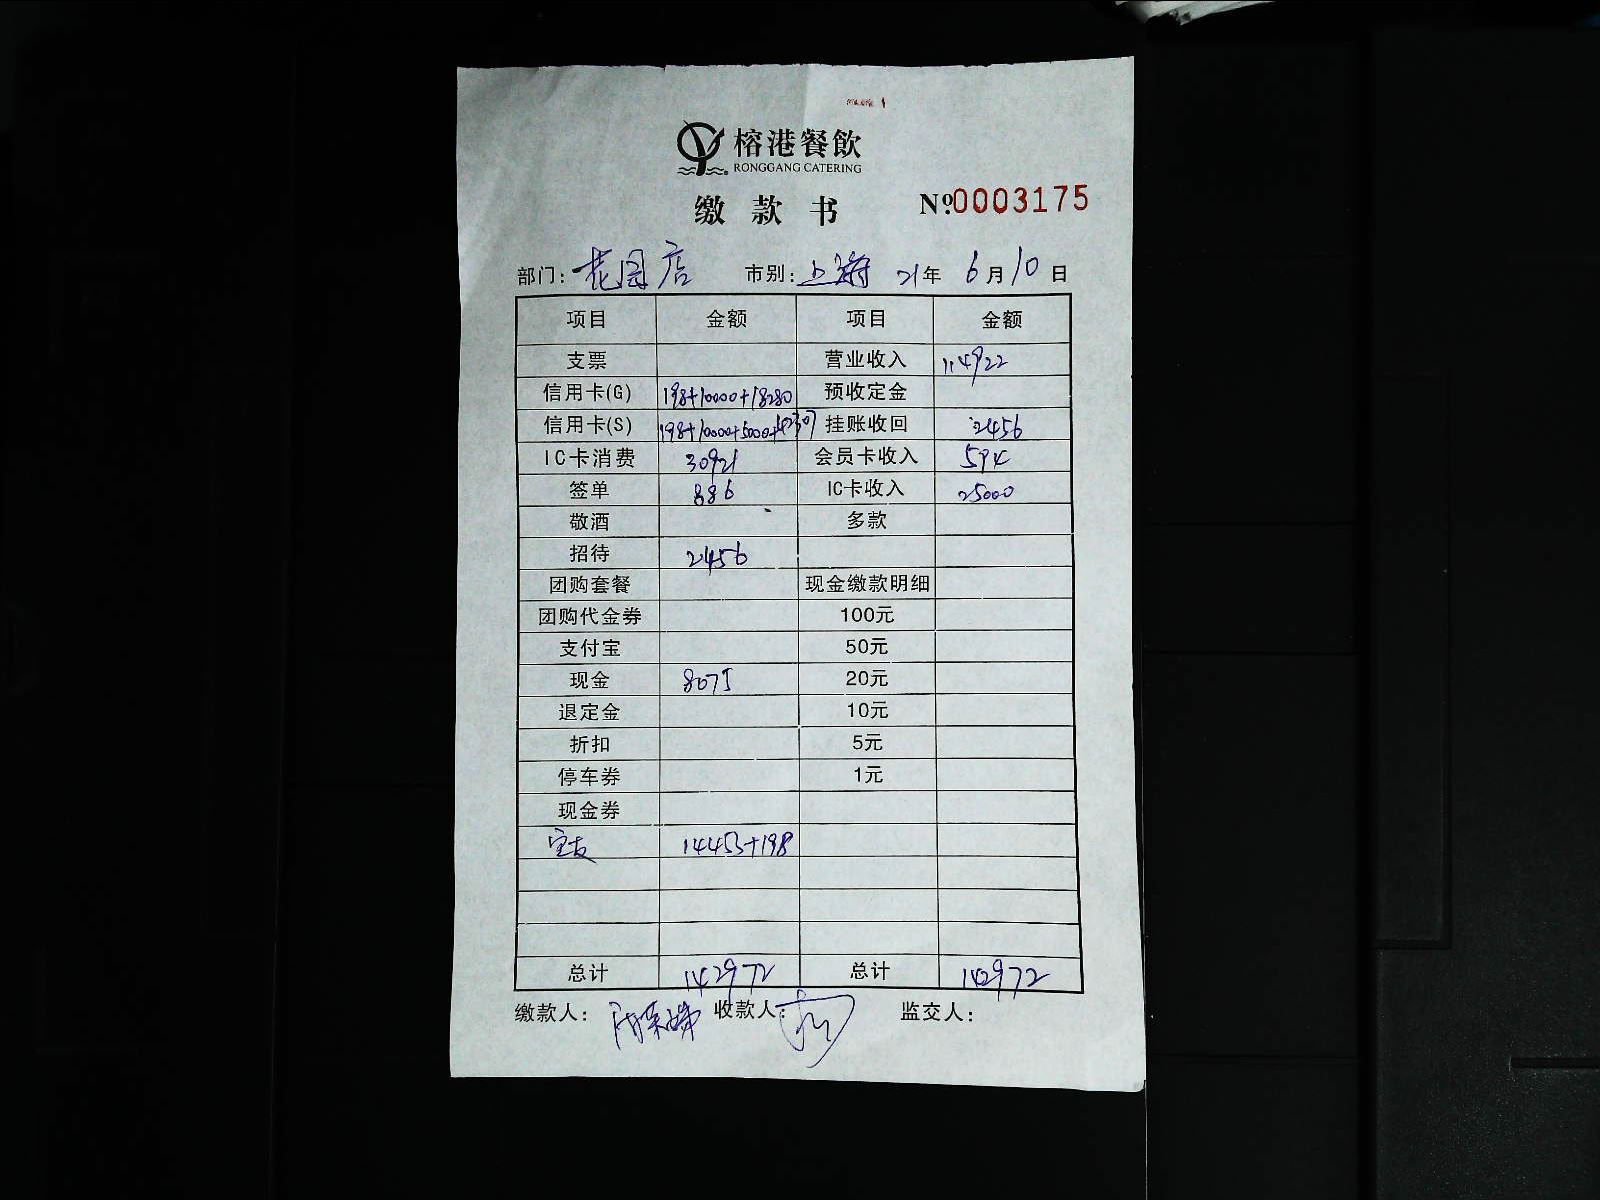 榕港餐飲
RONGGANG CATERING
缴款书 №0003175
部门：花园店 市别：上海 21年 6月10日
项目 金额 项目 金额
支票 营业收入 114922
信用卡(G) 198+10000+18280 预收定金
信用卡(S) 198+10000+5000+42307 挂账收回 2456
IC卡消费 30921 会员卡收入 594
签单 886 IC卡收入 25000
敬酒 多款
招待 2456
团购套餐 现金缴款明细
团购代金券 100元
支付宝 50元
现金 8075 20元
退定金 10元
折扣 5元
停车券 1元
现金券
14453+198
总计 142972 总计 142972
缴款人： 收款人： 监交人：